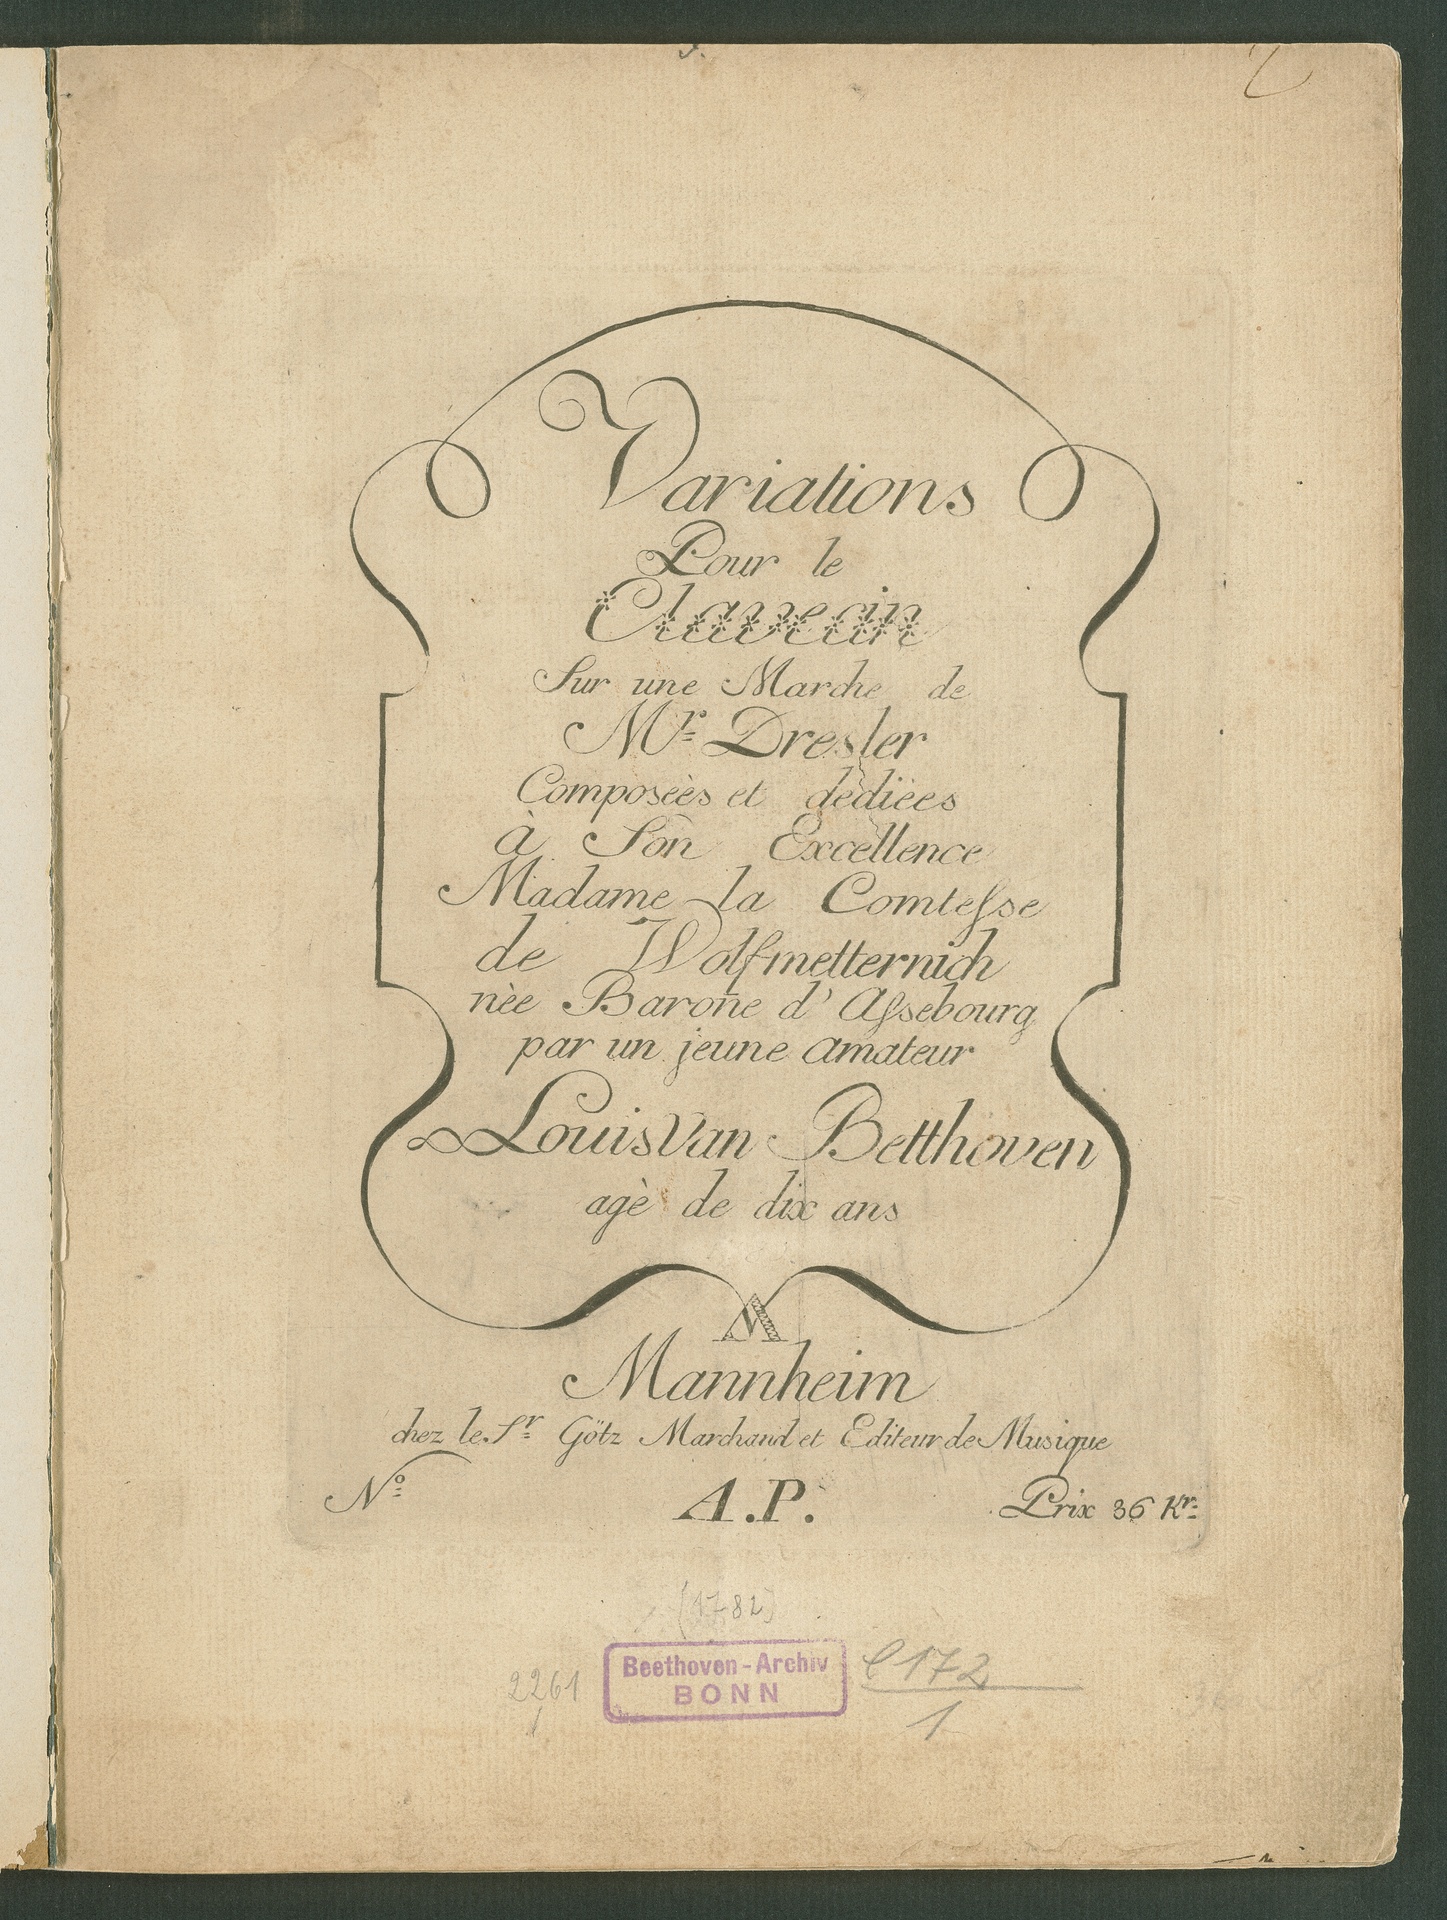 Variations
Pour le
Clavecin
Sur une Marche de
Mr Dresler
Composèès et dèdièes
à Son Excellence
Madame la Comtesse
de Wolfmetternich
nèe Barone d' Assebourg
par un jeune amateur
Louis van Betthoven
agè de dix ans
Mannheim
chez le Sr Götz Marchand et Editeur de Musique
No A.P. Prix 36 Kr
(1782)
2261 Beethoven-Archiv C 172
1 BONN 1